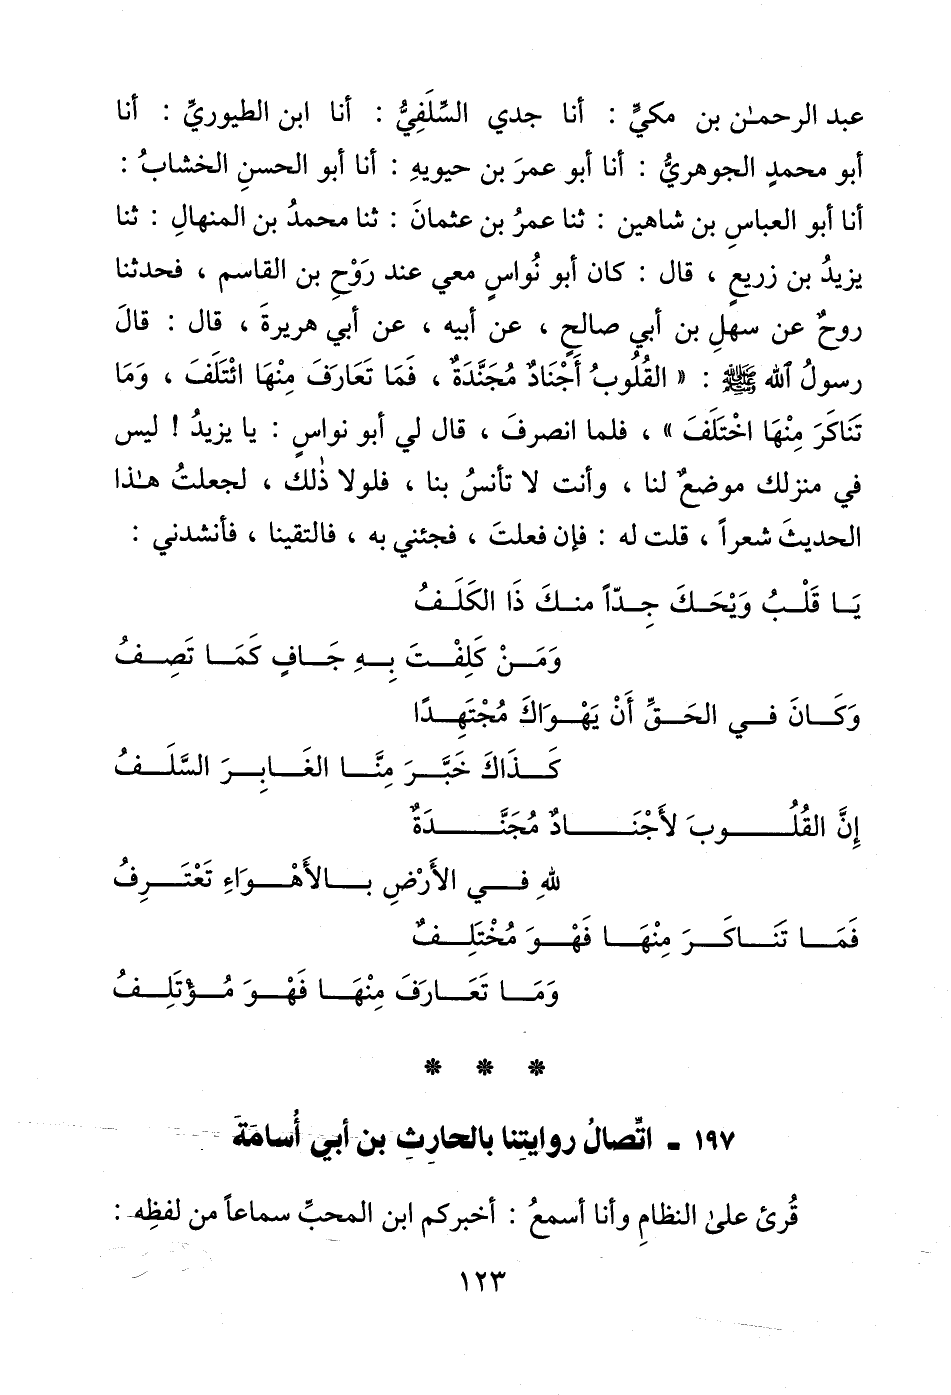 عبد الرحمٰن بن مكيٍّ : أنا جدي السِّلَفِيُّ : أنا ابن الطيوريِّ : أنا
أبو محمدٍ الجوهريُّ : أنا أبو عمرَ بن حيويهِ : أنا أبو الحسنِ الخشابُ :
أنا أبو العباسِ بن شاهين : ثنا عمرُ بن عثمانَ : ثنا محمدُ بن المنهالِ : ثنا
يزيدُ بن زريعٍ ، قال : كان أبو نُواسٍ معي عند رَوْحِ بن القاسم ، فحدثنا
روحٌ عن سهلِ بن أبي صالحٍ ، عن أبيه ، عن أبي هريرةَ ، قال : قالَ
رسولُ ٱلله ﷺ : « القُلُوبُ أَجْنَادٌ مُجَنَّدَةٌ ، فَمَا تَعَارَفَ مِنْهَا ائْتَلَفَ ، وَمَا
تَنَاكَرَ مِنْهَا اخْتَلَفَ » ، فلما انصرفَ ، قال لي أبو نواسٍ : يا يزيدُ ! ليس
في منزلك موضعٌ لنا ، وأنت لا تأنسُ بنا ، فلولا ذٰلك ، لجعلتُ هٰذا
الحديثَ شعراً ، قلت له : فإن فعلتَ ، فجئني به ، فالتقينا ، فأنشدني :
يَا قَلْبُ وَيْحَكَ جِدّاً منكَ ذَا الكَلَفُ
وَمَنْ كَلِفْتَ بِهِ جَافٍ كَمَا تَصِفُ
وَكَانَ في الحَقِّ أَنْ يَهْوَاكَ مُجْتَهِدًا
كَذَاكَ خَبَّرَ مِنَّا الغَابِرَ السَّلَفُ
إِنَّ القُلُوبَ لأَجْنَادٌ مُجَنَّدَةٌ
للهِ في الأَرْضِ بالأَهْوَاءِ تَعْتَرِفُ
فَمَا تَنَاكَرَ مِنْهَا فَهْوَ مُخْتَلِفٌ
وَمَا تَعَارَفَ مِنْهَا فَهْوَ مُؤْتَلِفُ
* * *
١٩٧ - اتِّصالُ روايتِنا بالحارِثِ بن أبي أُسامَةَ
قُرئ علىٰ النظامِ وأنا أسمعُ : أخبركم ابن المحبِّ سماعاً من لفظِه :
١٢٣